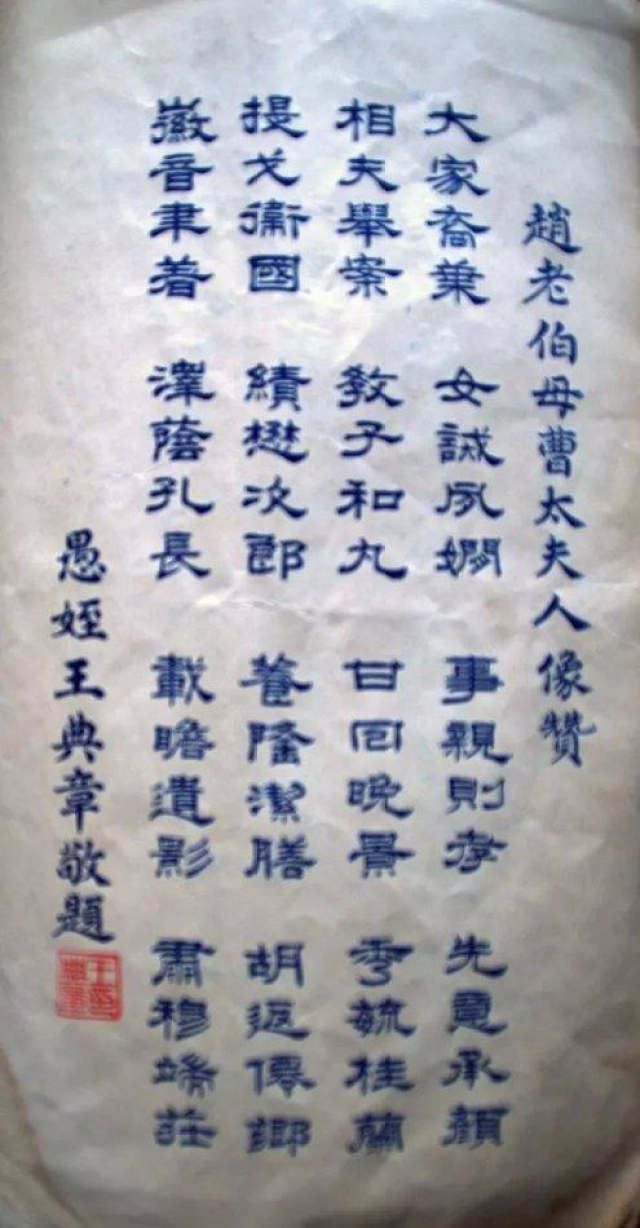 趙老伯母曹太夫人像贊
大家裔業 女誡夙嫻 事親則孝 先意承顏
相夫舉案 教子和丸 甘回晚景 秀毓桂蘭
提戈衞國 績懋次郎 養隆潔膳 胡返僊鄉
徽音聿著 澤蔭孔長 載瞻遺影 肅穆端莊
愚姪王典章敬題
王典章